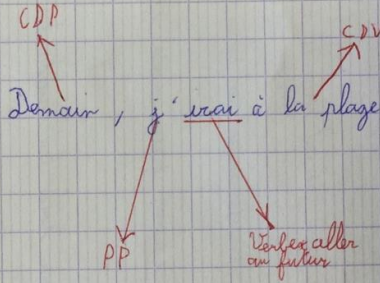 CDP
CDV
Demain, j'irai à la plage
PP
Verbe aller
au futur